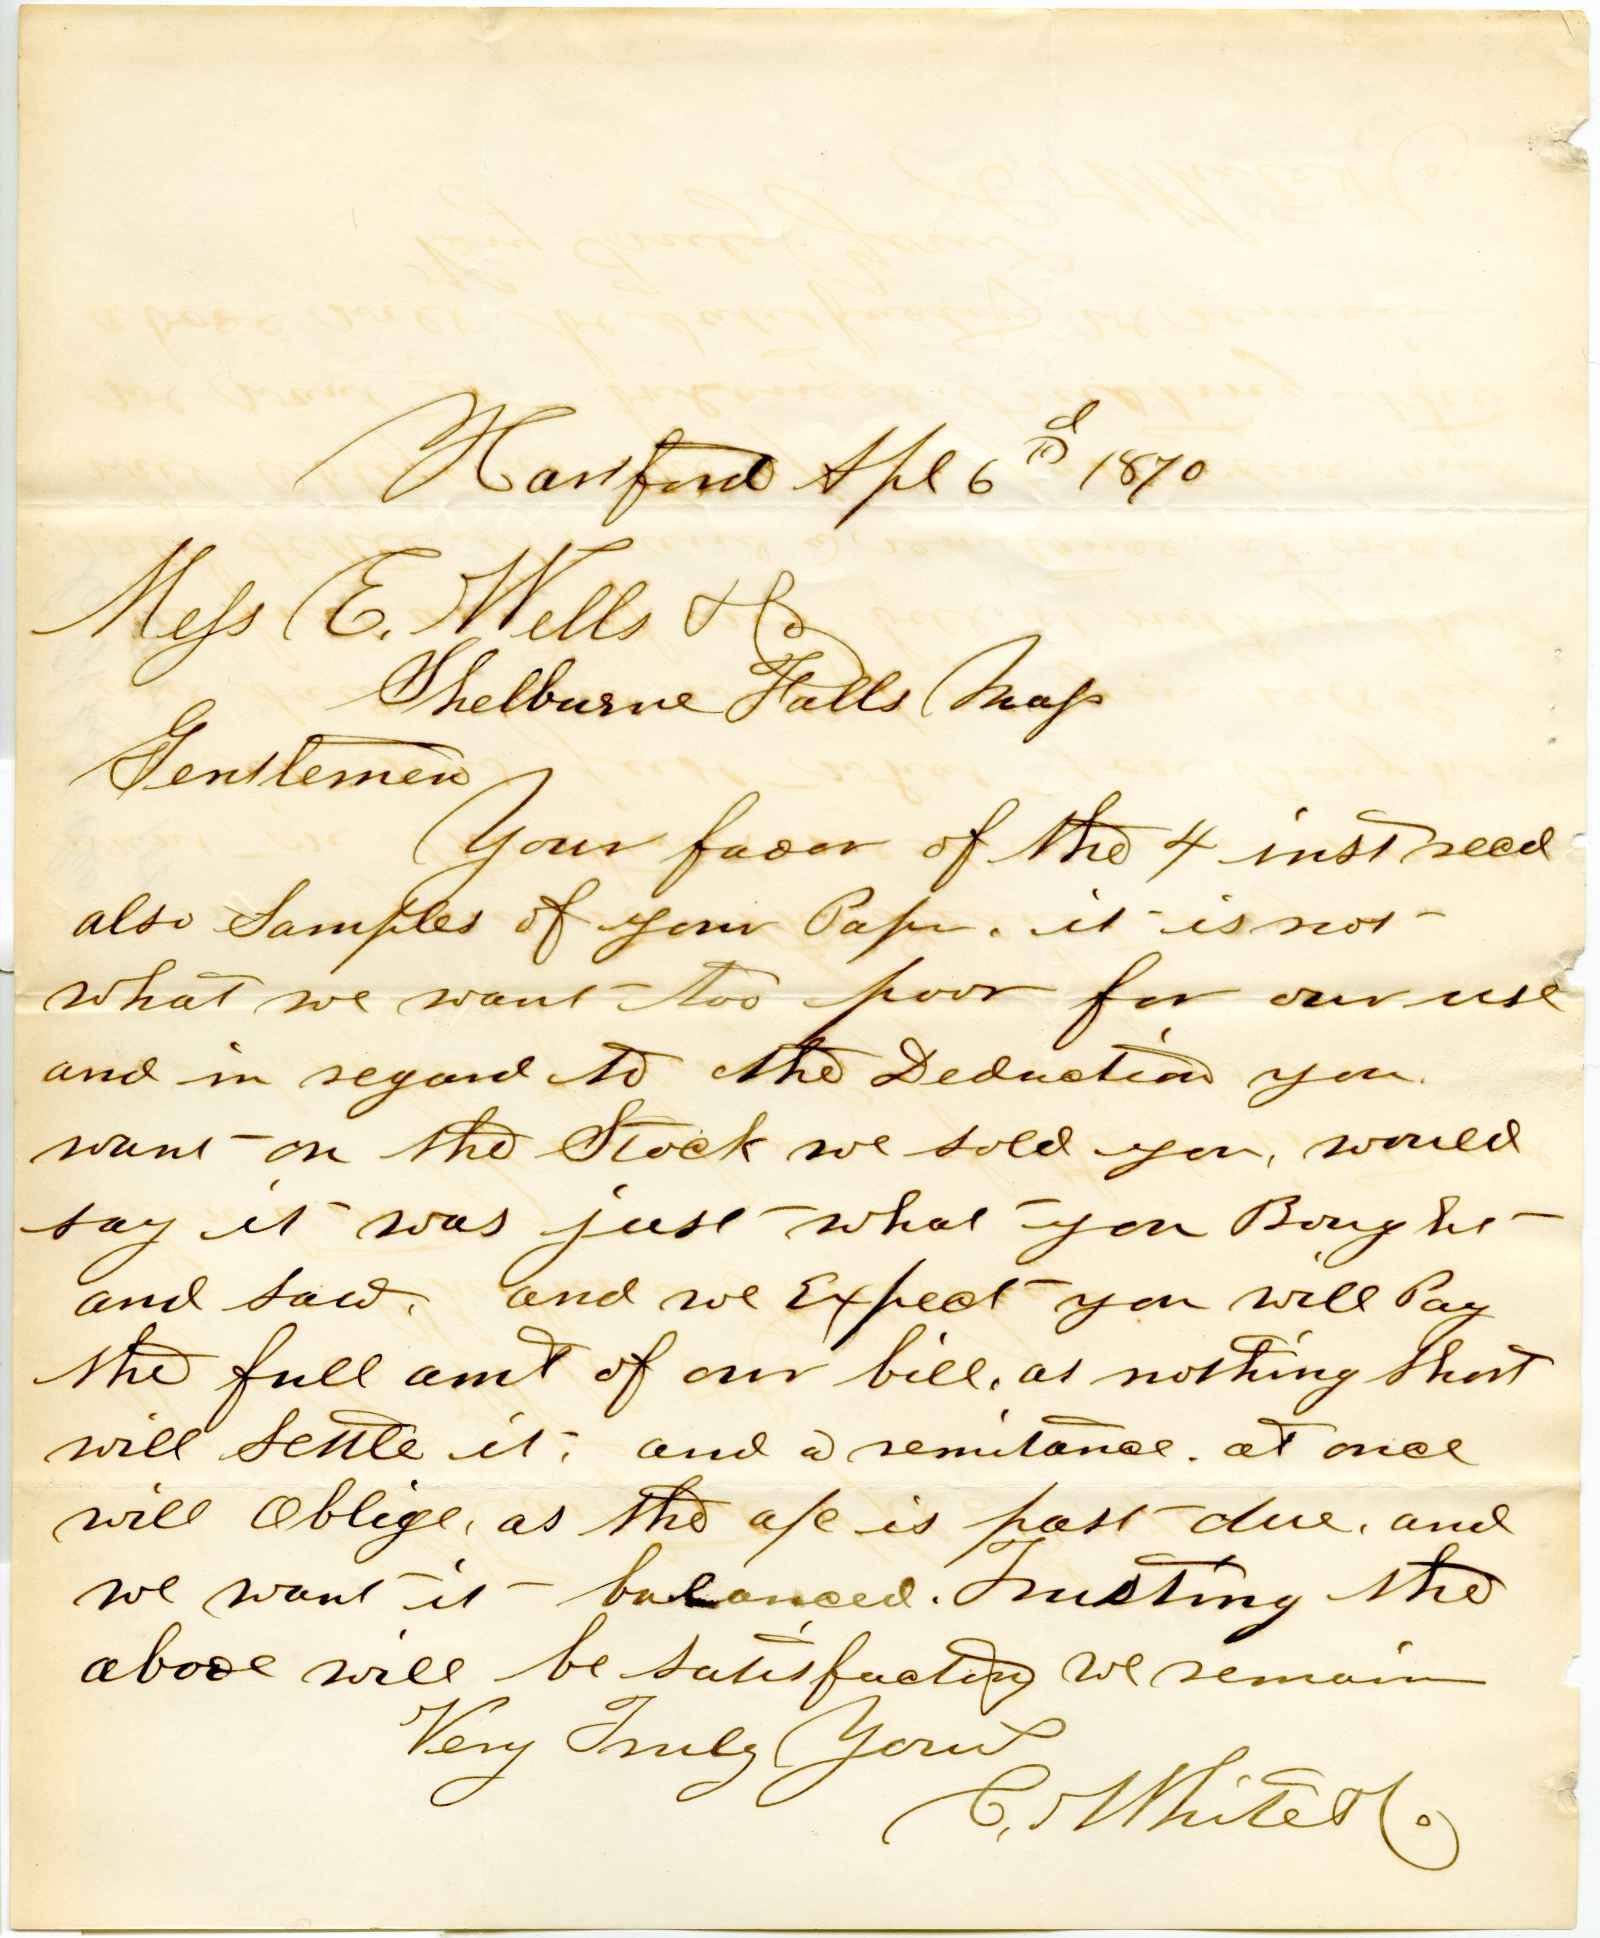 Hartford Apl 6th 1870
Mess E. Wells & Co
Shelburne Falls Mass
Gentlemen
Your favor of the 4 inst recd
also Samples of your Paper. it is not
what we want too poor for our use
and in regard to the Deduction you
want on the Stock we sold you, would
say it was just what you Bought
and saw. and we Expect you will Pay
the full amt of our bill, as nothing short
will settle it, and a remitance. at once
will Oblige, as the a/c is past due, and
we want it balanced. Trusting the
above will be satisfactory we remain
Very Truly Yours
C. White & Co